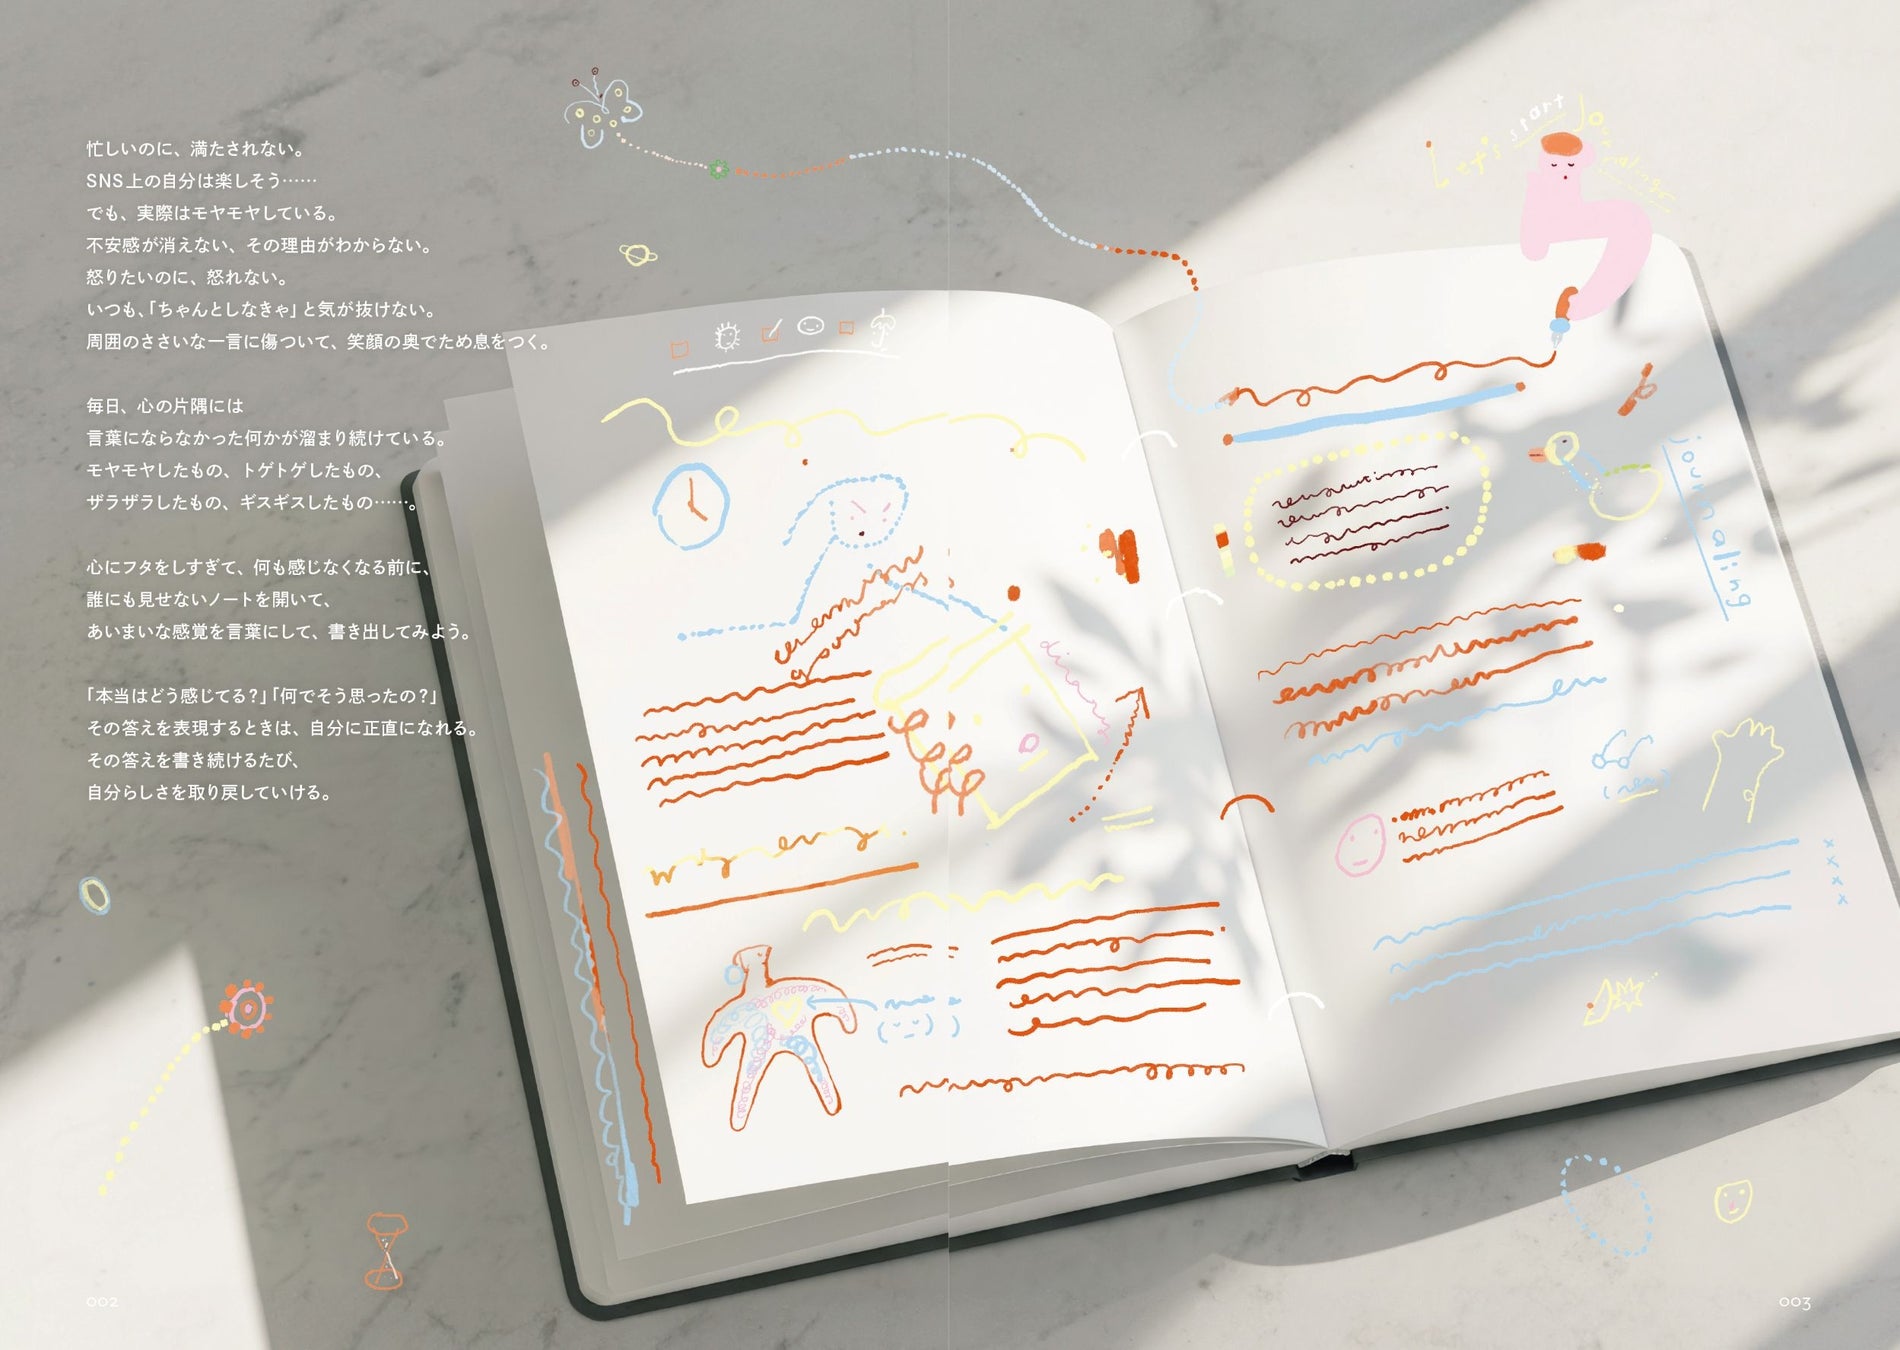 忙しいのに、満たされない。
SNS上の自分は楽しそう……
でも、実際はモヤモヤしている。
不安感が消えない、その理由がわからない。
怒りたいのに、怒れない。
いつも、「ちゃんとしなきゃ」と気が抜けない。
周囲のささいな一言に傷ついて、笑顔の奥でため息をつく。
毎日、心の片隅には
言葉にならなかった何かが溜まり続けている。
モヤモヤしたもの、トゲトゲしたもの、
ザラザラしたもの、ギスギスしたもの……。
心にフタをしすぎて、何も感じなくなる前に、
誰にも見せないノートを開いて、
あいまいな感覚を言葉にして、書き出してみよう。
「本当はどう感じてる？」「何でそう思ったの？」
その答えを表現するときは、自分に正直になれる。
その答えを書き続けるたび、
自分らしさを取り戻していける。
Let's start Journaling
diary
journaling
002
003